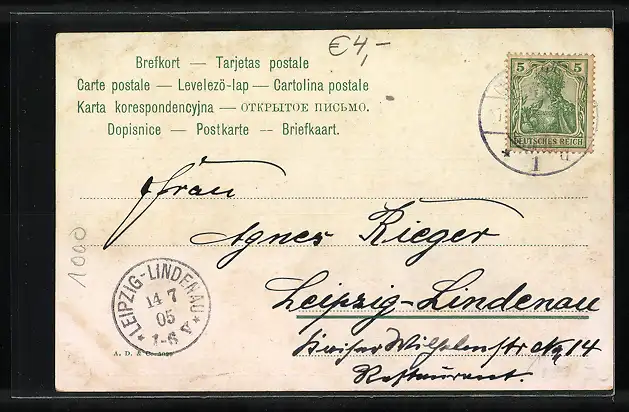 €4,-
Brefkort — Tarjetas postale
Carte postale — Levelező-lap — Cartolina postale
Karta korespondencyjna — ОТКРЫТОЕ ПИСЬМО.
Dopisnice — Postkarte -- Briefkaart.
5 5
DEUTSCHES REICH
* 1
Frau
Agnes Rieger
Leipzig-Lindenau
Kaiser Wilhelmstr No 14
Restaurant.
1000
* LEIPZIG-LINDENAU *
14 7
05
1-6 V
A. D. & C.